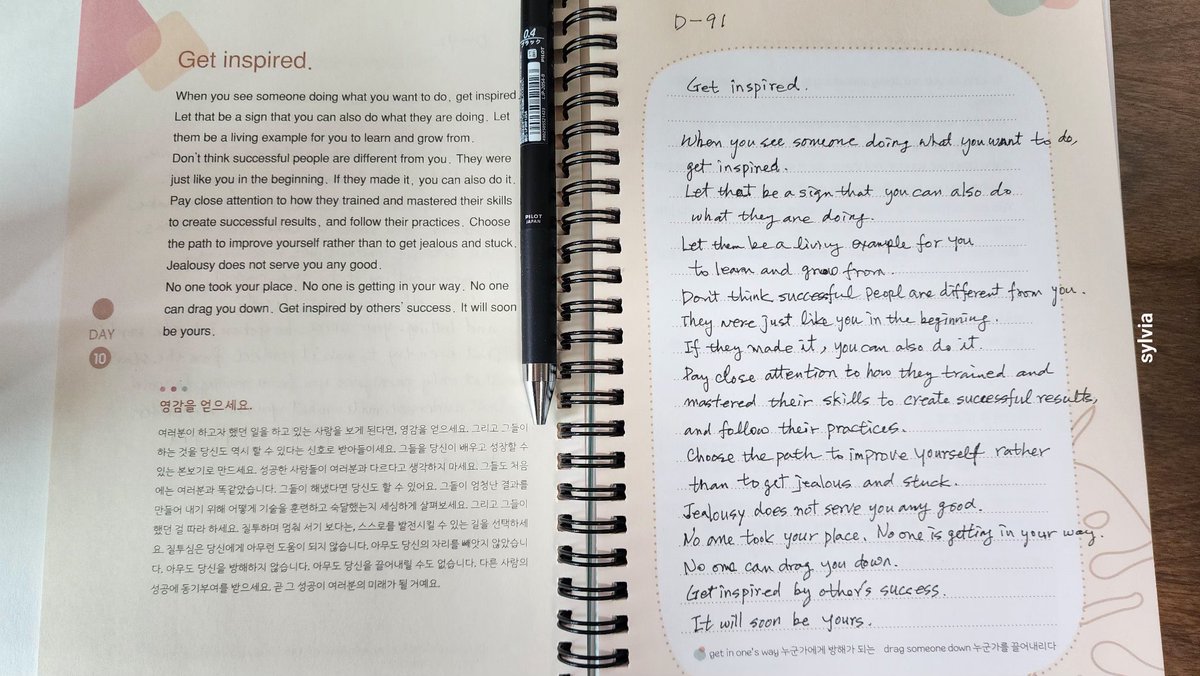 Get inspired.
When you see someone doing what you want to do, get inspired
Let that be a sign that you can also do what they are doing. Let
them be a living example for you to learn and grow from.
Don't think successful people are different from you. They were
just like you in the beginning. If they made it, you can also do it.
Pay close attention to how they trained and mastered their skills
to create successful results, and follow their practices. Choose
the path to improve yourself rather than to get jealous and stuck.
Jealousy does not serve you any good.
No one took your place. No one is getting in your way. No one
can drag you down. Get inspired by others' success. It will soon
be yours.
DAY
10
영감을 얻으세요.
여러분이 하고자 했던 일을 하고 있는 사람을 보게 된다면, 영감을 얻으세요. 그리고 그들이
하는 것을 당신도 역시 할 수 있다는 신호로 받아들이세요. 그들을 당신이 배우고 성장할 수
있는 본보기로 만드세요. 성공한 사람들이 여러분과 다르다고 생각하지 마세요. 그들도 처음
에는 여러분과 똑같았습니다. 그들이 해냈다면 당신도 할 수 있어요. 그들이 엄청난 결과를
만들어 내기 위해 어떻게 기술을 훈련하고 숙달했는지 세심하게 살펴보세요. 그리고 그들이
했던 걸 따라 하세요. 질투하며 멈춰 서기 보다는, 스스로를 발전시킬 수 있는 길을 선택하세
요. 질투심은 당신에게 아무런 도움이 되지 않습니다. 아무도 당신의 자리를 빼앗지 않았습니
다. 아무도 당신을 방해하지 않습니다. 아무도 당신을 끌어내릴 수도 없습니다. 다른 사람의
성공에 동기부여를 받으세요. 곧 그 성공이 여러분의 미래가 될 거예요.
0.4
ブラック
PILOT
JAPAN
D-91
Get inspired.
When you see someone doing what you want to do,
get inspired.
Let that be a sign that you can also do
what they are doing.
Let them be a living example for you
to learn and grow from.
Don't think successful peopl are different from you.
They were just like you in the beginning.
If they made it, you can also do it.
Pay close attention to how they trained and
mastered their skills to create successful results,
and follow their practices.
Choose the path to improve yourself rather
than to get jealous and stuck.
Jealousy does not serve you any good.
No one took your place. No one is getting in your way.
No one can drag you down.
Get inspired by other's success.
It will soon be yours.
get in one's way 누군가에게 방해가 되는 drag someone down 누군가를 끌어내리다
sylvia